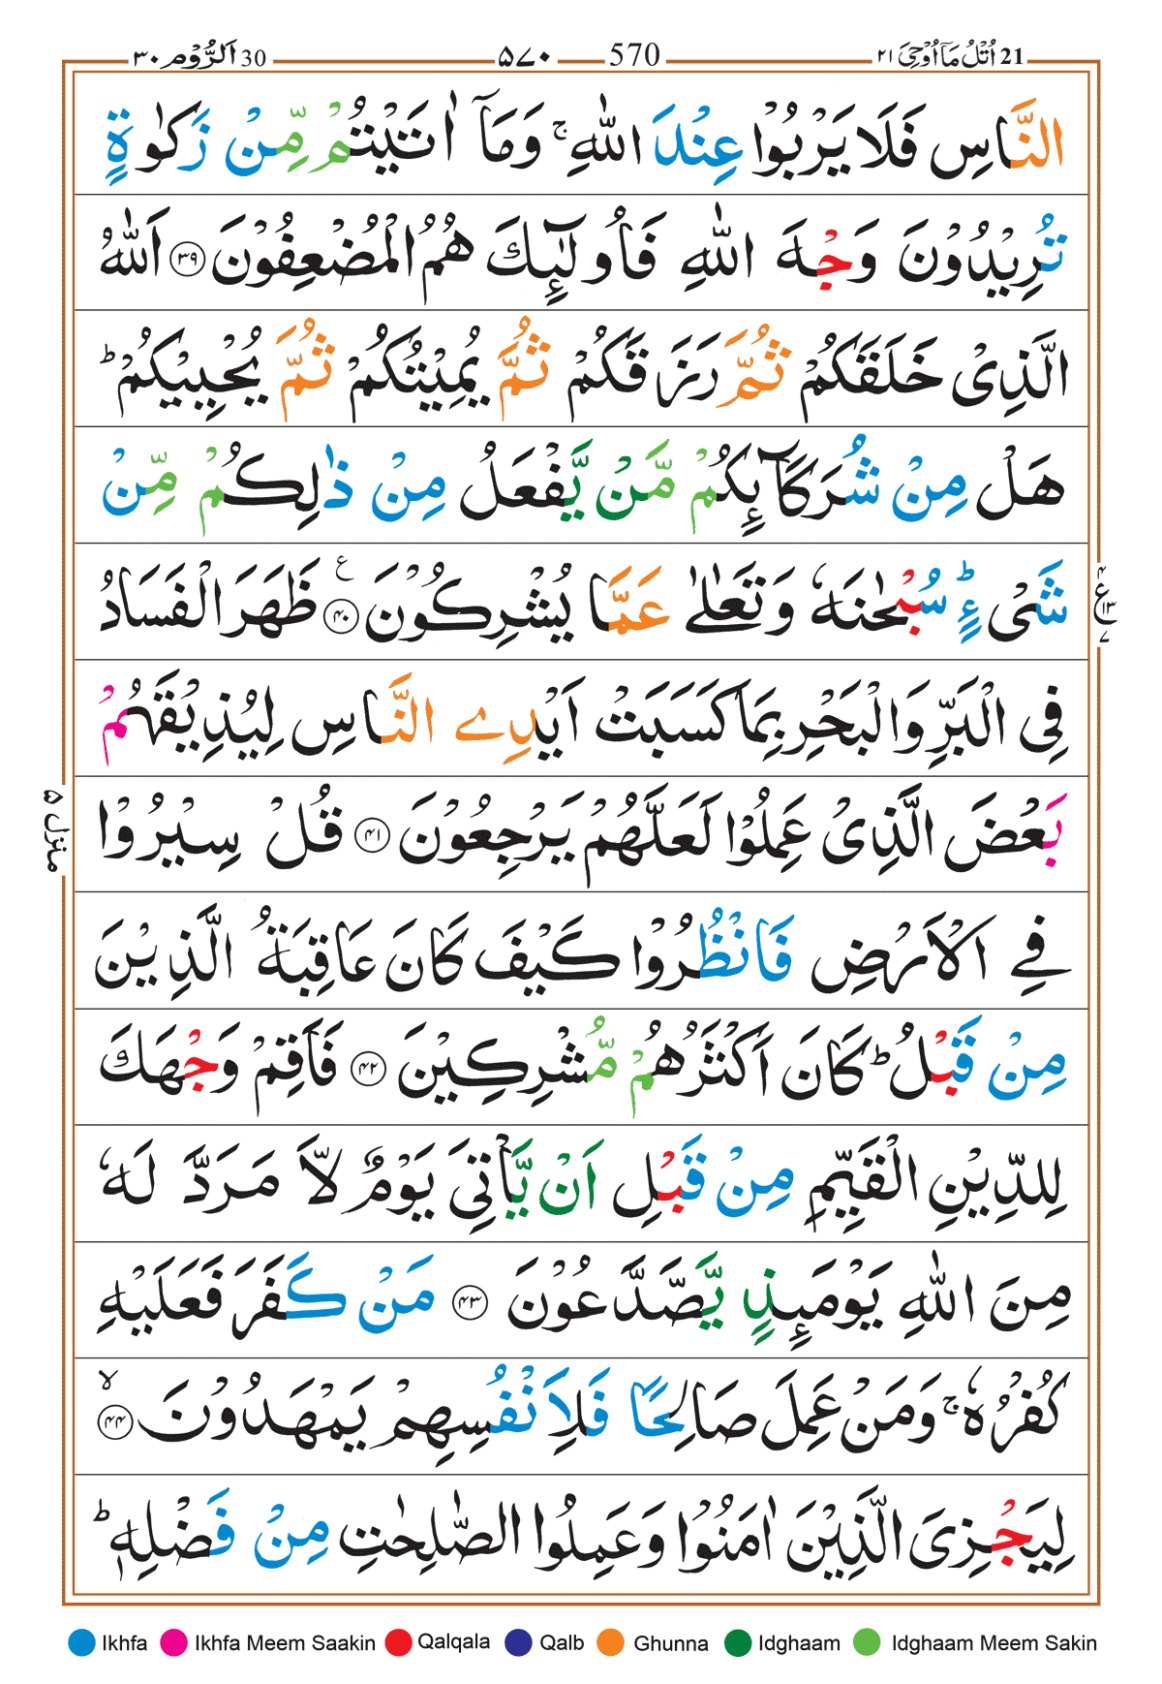 اَلرُّوْم ٣٠ 30 ٥٧٠ 570 اُتْلُ مَاۤ اُوْحِیَ ٢١ 21
النَّاسِ فَلَا یَرْبُوْا عِنْدَ اللّٰهِ ۚ وَمَاۤ اٰتَیْتُمْ مِّنْ زَكٰوةٍ
تُرِیْدُوْنَ وَجْهَ اللّٰهِ فَاُولٰٓئِكَ هُمُ الْمُضْعِفُوْنَ ۝٣٩ اَللّٰهُ
الَّذِیْ خَلَقَكُمْ ثُمَّ رَزَقَكُمْ ثُمَّ یُمِیْتُكُمْ ثُمَّ یُحْیِیْكُمْ ؕ
هَلْ مِنْ شُرَكَآىِٕكُمْ مَّنْ یَّفْعَلُ مِنْ ذٰلِكُمْ مِّنْ
شَیْءٍ ؕ سُبْحٰنَهٗ وَتَعٰلٰى عَمَّا یُشْرِكُوْنَ ۝٤٠ ع ظَهَرَ الْفَسَادُ
ع ٤ ١٣ ٧
فِی الْبَرِّ وَالْبَحْرِ بِمَا كَسَبَتْ اَیْدِی النَّاسِ لِیُذِیْقَهُمْ
بَعْضَ الَّذِیْ عَمِلُوْا لَعَلَّهُمْ یَرْجِعُوْنَ ۝٤١ قُلْ سِیْرُوْا
منزل ٥
فِی الْاَرْضِ فَانْظُرُوْا كَیْفَ كَانَ عَاقِبَةُ الَّذِیْنَ
مِنْ قَبْلُ ؕ كَانَ اَكْثَرُهُمْ مُّشْرِكِیْنَ ۝٤٢ فَاَقِمْ وَجْهَكَ
لِلدِّیْنِ الْقَیِّمِ مِنْ قَبْلِ اَنْ یَّاْتِیَ یَوْمٌ لَّا مَرَدَّ لَهٗ
مِنَ اللّٰهِ یَوْمَىِٕذٍ یَّصَّدَّعُوْنَ ۝٤٣ مَنْ كَفَرَ فَعَلَیْهِ
كُفْرُهٗ ۚ وَمَنْ عَمِلَ صَالِحًا فَلِاَنْفُسِهِمْ یَمْهَدُوْنَ ۝٤٤ ۙ
لِیَجْزِیَ الَّذِیْنَ اٰمَنُوْا وَعَمِلُوا الصّٰلِحٰتِ مِنْ فَضْلِهٖ ؕ
Ikhfa Ikhfa Meem Saakin Qalqala Qalb Ghunna Idghaam Idghaam Meem Sakin